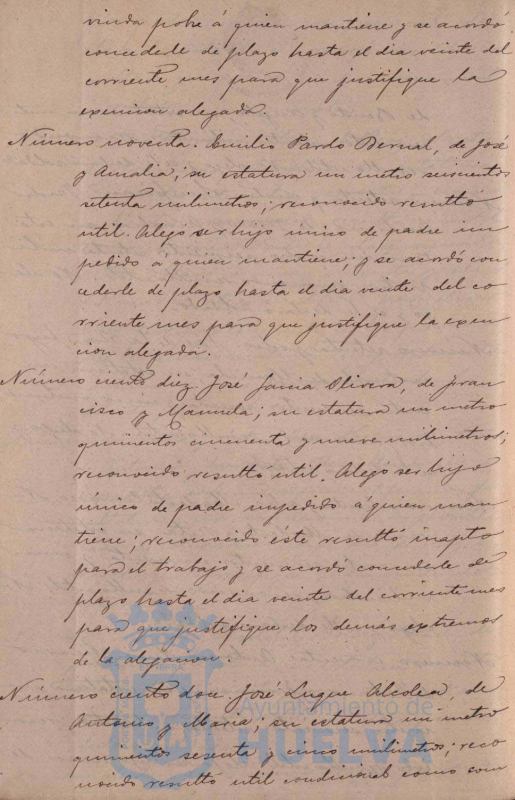 viuda pobre á quien mantiene y se acordó
concederle de plazo hasta el dia veinte del
corriente mes para que justifique la
exencion alegada.
Número noventa. Emilio Pardo Bernal, de José
y Amalia; su estatura un metro seiscientos
setenta milimetros; reconocido resultó
util. Alegó ser hijo único de padre im
pedido á quien mantiene; y se acordó con
cederle de plazo hasta el dia veinte del co
rriente mes para que justifique la exen
cion alegada.
Número ciento diez. José Garcia Olivera, de Fran
cisco y Manuela; su estatura un metro
quinientos cincuenta y nueve milimetros;
reconocido resultó util. Alegó ser hijo
único de padre impedido á quien man
tiene; reconocido éste resultó inapto
para el trabajo y se acordó concederle de
plazo hasta el dia veinte del corriente mes
para que justifique los demás extremos
de la alegacion.
Número ciento doce. José Luque Alcolea, de
Antonio y Maria; su estatura un metro
quinientos sesenta y cinco milimetros; reco
nocido resultó util condicional como com
Ayuntamiento de
HUELVA